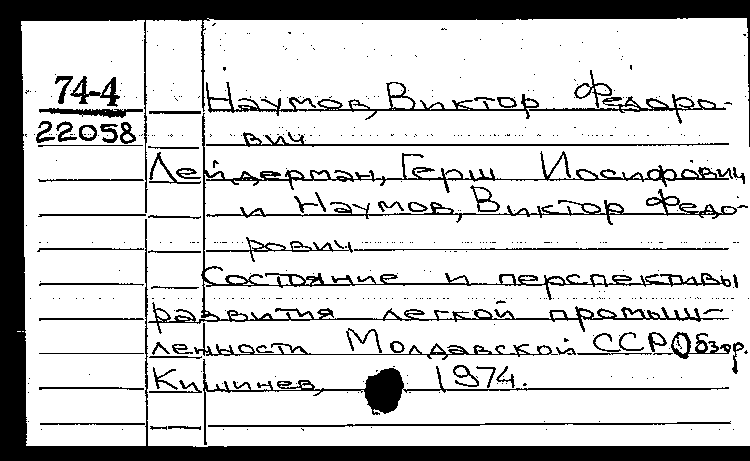 74-4
22058
Наумов, Виктор Федоро-
вич
Лейдерман, Герш Иосифович
и Наумов, Виктор Федо-
рович
Состояние и перспективы
развития легкой промыш-
ленности Молдавской ССР Обзор.
Кишинев, 1974.